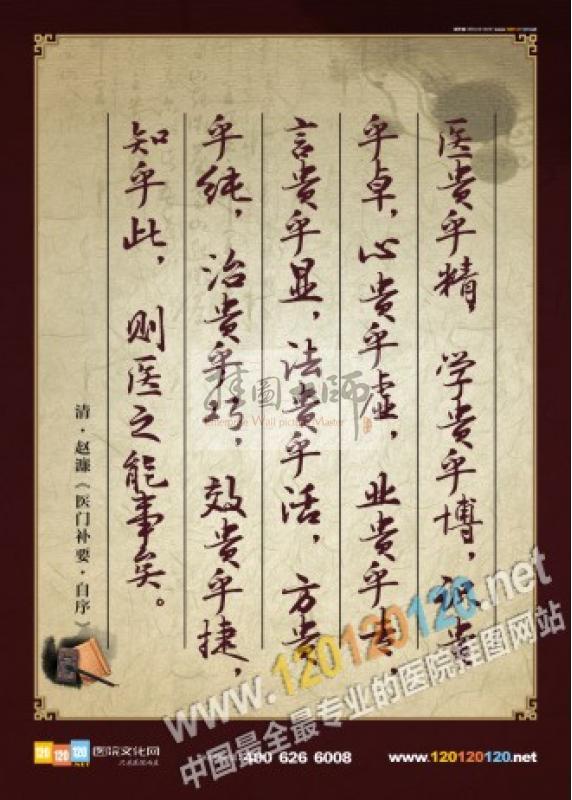 医贵乎精，学贵乎博，识贵
乎卓，心贵乎虚，业贵乎专，
言贵乎显，法贵乎活，方贵
乎纯，治贵乎巧，效贵乎捷，
知乎此，则医之能事矣。
清·赵濂《医门补要·自序》
挂图大师
Enterprise Wall picture Master
www.120120120.net
中国最全最专业的医院挂图网站
120 120 120 .NET 医院文化网
400 626 6008
www.120120120.net